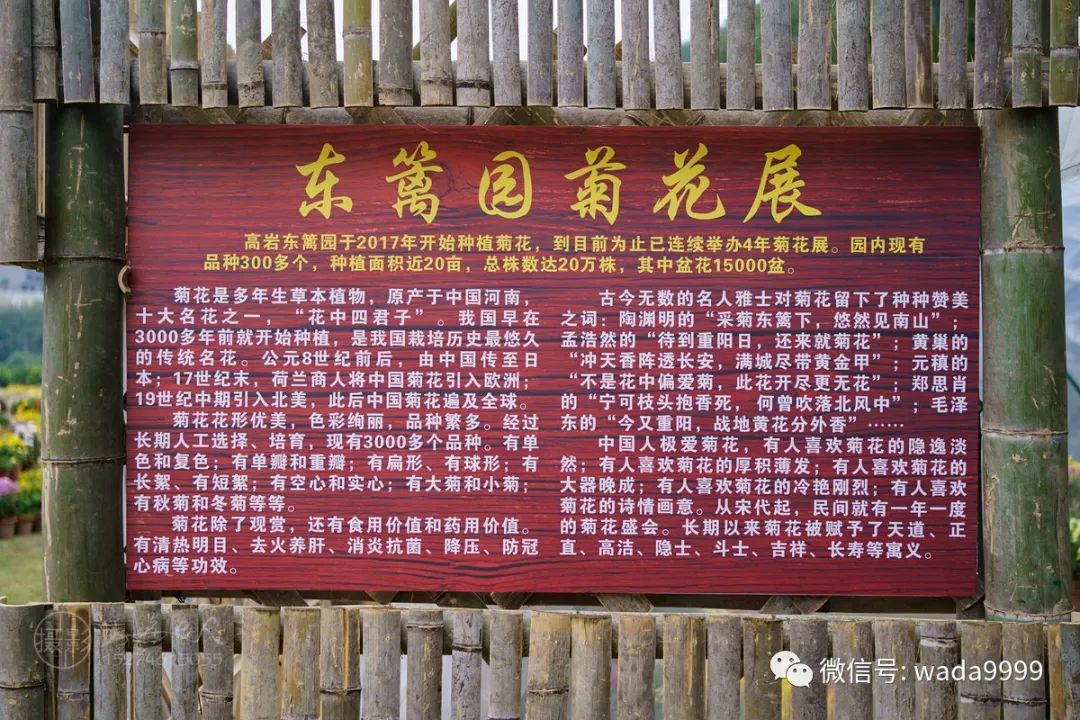 东篱园菊花展
高岩东篱园于2017年开始种植菊花，到目前为止已连续举办4年菊花展。园内现有
品种300多个，种植面积近20亩，总株数达20万株，其中盆花15000盆。
菊花是多年生草本植物，原产于中国河南，
十大名花之一，“花中四君子”。我国早在
3000多年前就开始种植，是我国栽培历史最悠久
的传统名花。公元8世纪前后，由中国传至日
本；17世纪末，荷兰商人将中国菊花引入欧洲；
19世纪中期引入北美，此后中国菊花遍及全球。
菊花花形优美，色彩绚丽，品种繁多。经过
长期人工选择、培育，现有3000多个品种。有单
色和复色；有单瓣和重瓣；有扁形、有球形；有
长絮、有短絮；有空心和实心；有大菊和小菊；
有秋菊和冬菊等等。
菊花除了观赏，还有食用价值和药用价值。
有清热明目、去火养肝、消炎抗菌、降压、防冠
心病等功效。
古今无数的名人雅士对菊花留下了种种赞美
之词：陶渊明的“采菊东篱下，悠然见南山”；
孟浩然的“待到重阳日，还来就菊花”；黄巢的
“冲天香阵透长安，满城尽带黄金甲”；元稹的
“不是花中偏爱菊，此花开尽更无花”；郑思肖
的“宁可枝头抱香死，何曾吹落北风中”；毛泽
东的“今又重阳，战地黄花分外香”……
中国人极爱菊花，有人喜欢菊花的隐逸淡
然；有人喜欢菊花的厚积薄发；有人喜欢菊花的
大器晚成；有人喜欢菊花的冷艳刚烈；有人喜欢
菊花的诗情画意。从宋代起，民间就有一年一度
的菊花盛会。长期以来菊花被赋予了天道、正
直、高洁、隐士、斗士、吉祥、长寿等寓义。
摄影
微信号: wada9999